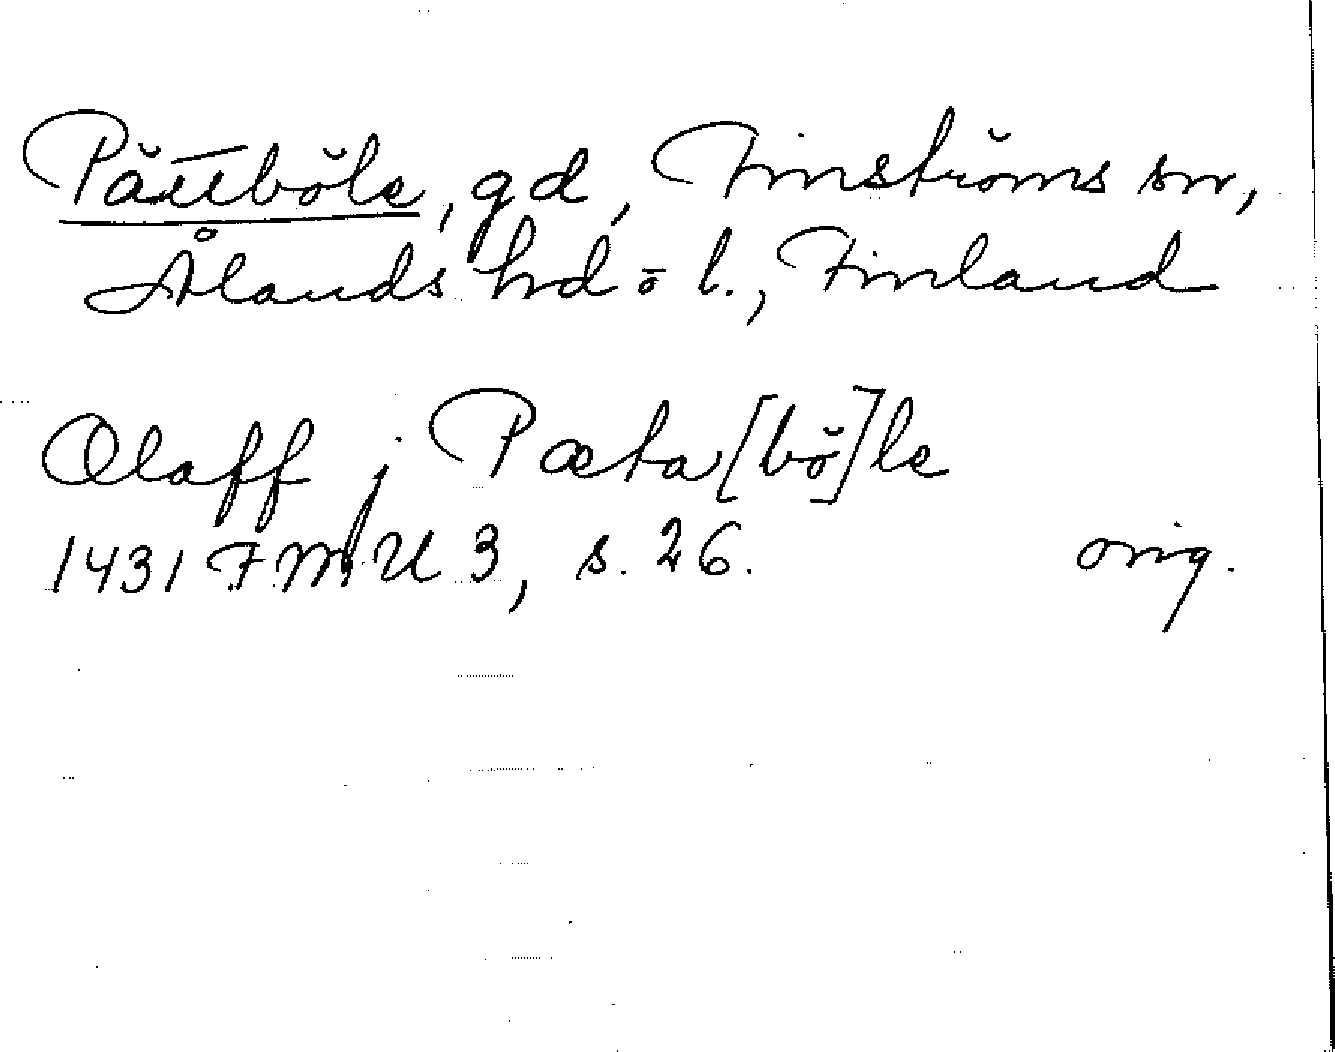 Pättböle, gd, Finströms sn,
Ålands hd o l., Finland
Olaff j Pæta[bö]le
1431 FMU 3, s. 26. orig.